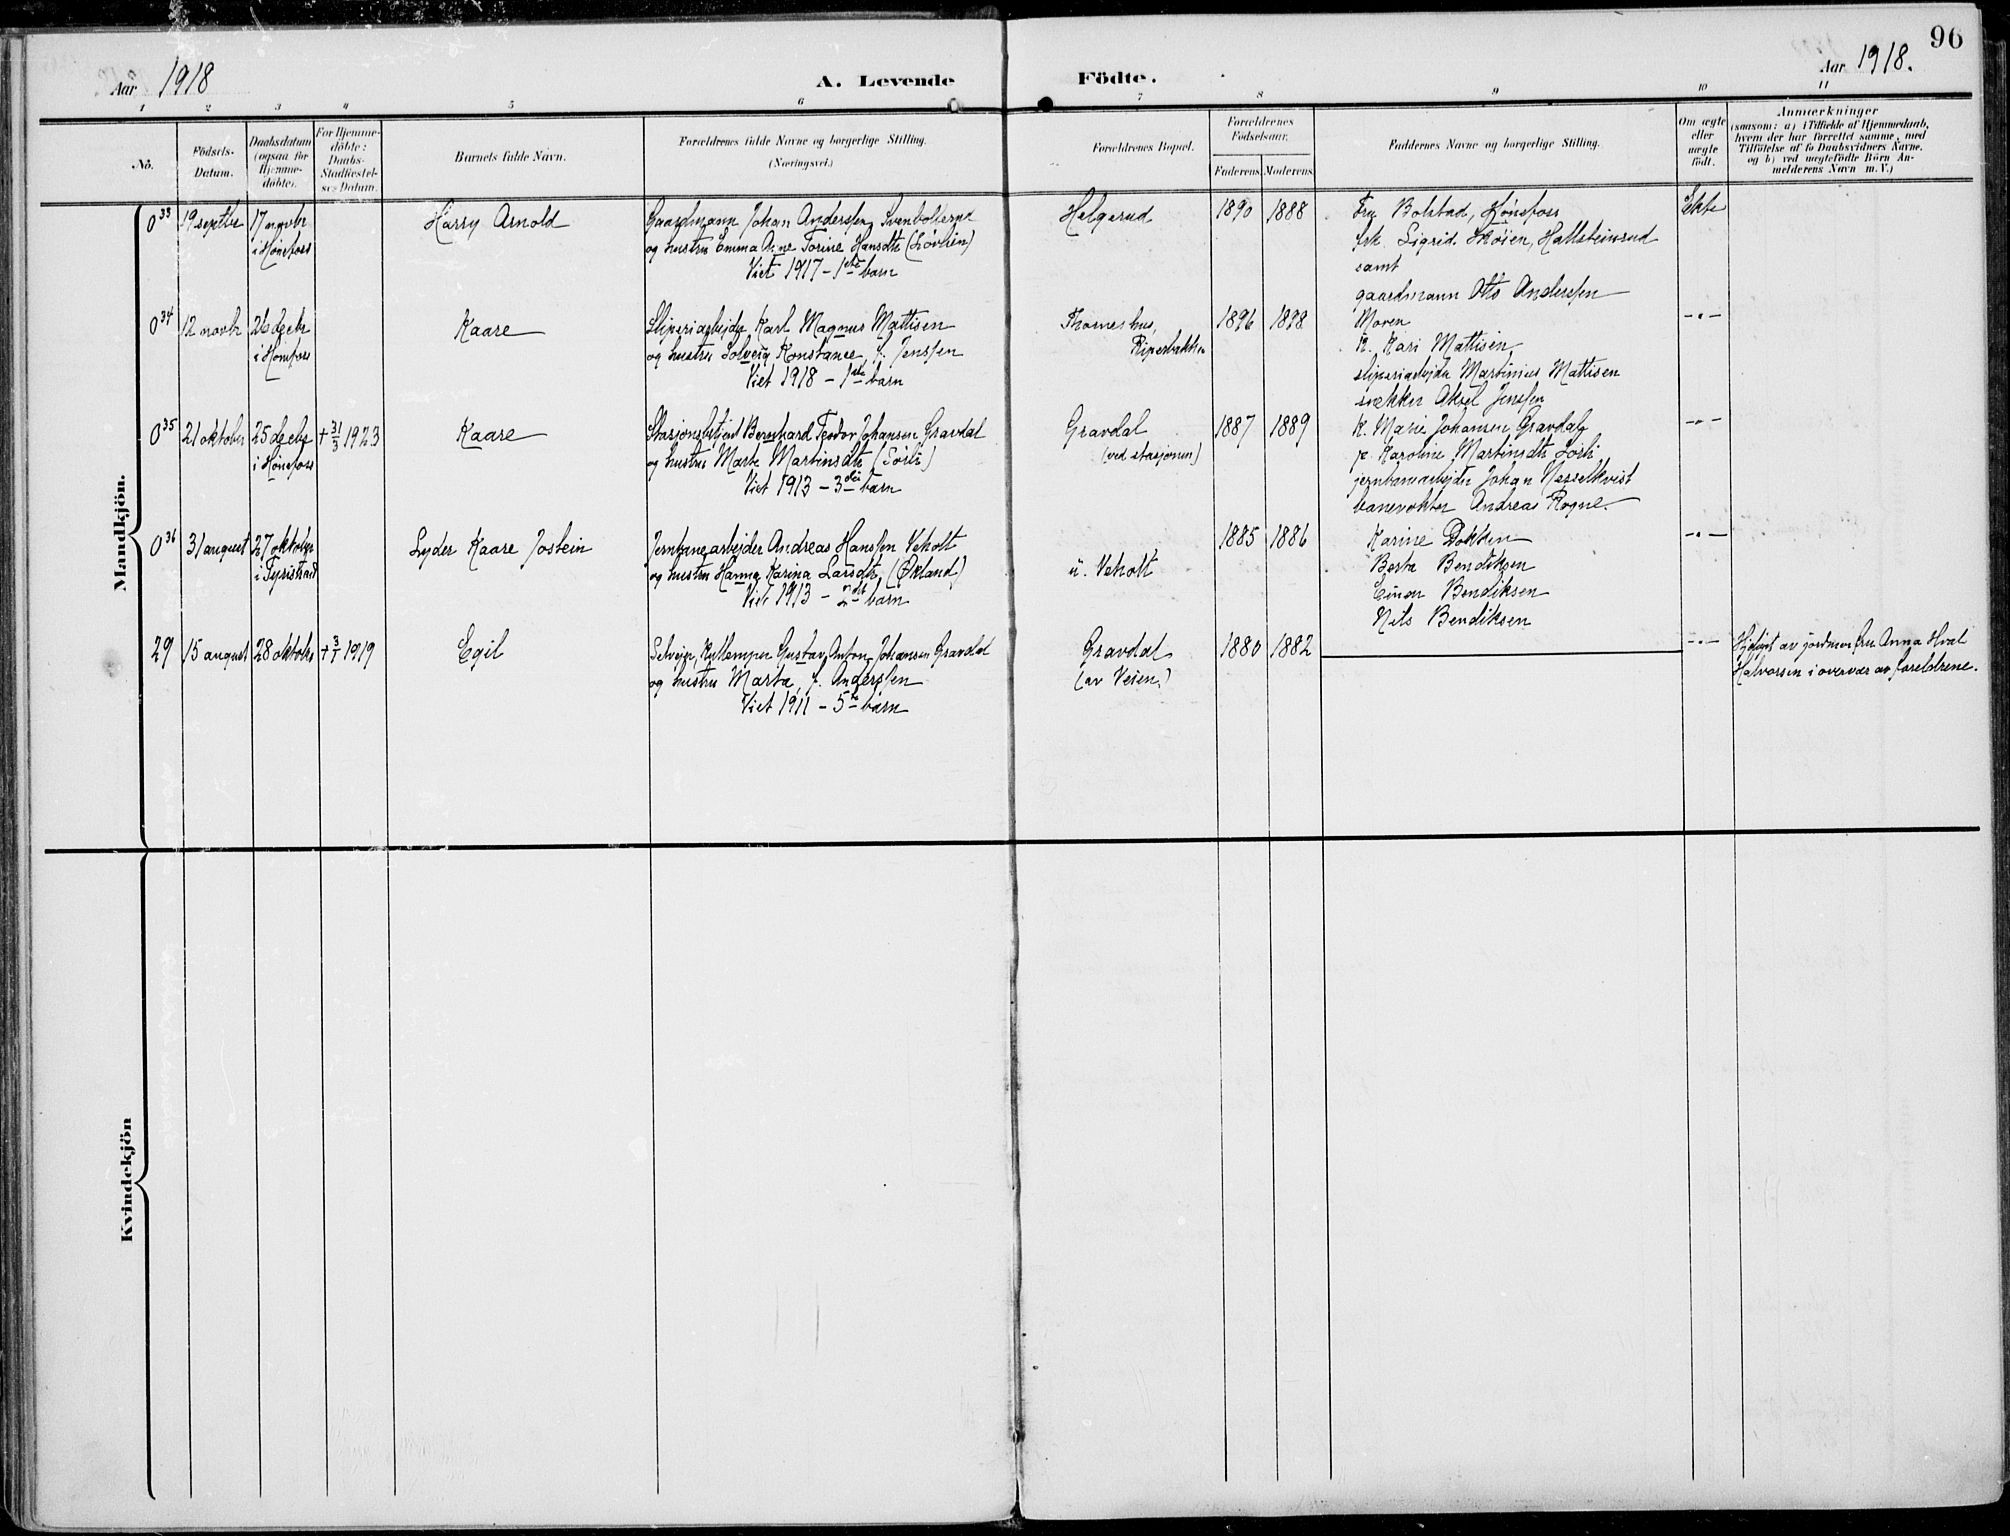 96
Aar 1918
A. Levende Födte.
Aar 1918.
1 2 3 4 5 6 7 8 9 10 11
No.
Födsels-
Datum.
Daabsdatum
(ogsaa for
Hjemme-
döbte).
For Hjemme-
döbte:
Daabs-
Stadfæstel-
ses-Datum.
Barnets fulde Navn.
Forældrenes fulde Navne og borgerlige Stilling.
(Næringsvei.)
Forældrenes Bopæl.
Forældrenes
Födselsaar.
Faderens Moderens
Faddernes Navne og borgerlige Stilling.
Om ægte
eller
uægte
födt.
Anmærkninger
(saasom: a) i Tilfælde af Hjemmedaab,
hvem der har forrettet samme, med
Tilföielse af to Daabsvidners Navne,
og b) ved uægtefödte Börn An-
melderens Navn m. V.)
Mandkjön.
0 33
19 septbr
17 novbr
i Hönefoss
Harry Arnold
Gaardmann Johan Anderssen Svenbolterna
og hustru Emma Anne Torine Hansdtr (Lövlien)
Viet 1917 – 1ste barn
Helgerud
1890 1888
Fru Bolstad, Hönefoss
frk Sigrid Skøien, Hallsteinrud
samt
gaardmann Otto Anderssen
Ekte
0 34
12 novbr
26 decbr
i Hönefoss
Kaare
Sliperiarbeider Karl Magnus Mattisen
og hustru Solveig Konstance, f. Jenssen
Viet 1918 – 1ste barn
Thorneshus,
Ripersbakken
1896 1898
Moren
K. Kari Mattisen
sliperiarbeider Martinius Mattisen
snekker Aksel Jenssen
-"-
0 35
21 oktober
25 decbr
i Hönefoss
+ 31/3 1923
Kaare
Stasjonsbetjent Bernhard Teodor Johansen Gravdal
og hustru Marte Martinsdtr (Sörli)
Viet 1913 – 3die barn
Gravdal
(ved stasjonen)
1887 1889
K. Marie Johansen Gravdal
p. Karoline Martinsdtr Sörli
jernbanearbeider Johan Nesselkvist
banevokter Andreas Rogne.
-"-
0 36
31 august
27 oktober
i Tyristrand
Lyder Kaare Jostein
Jernbanearbeider Andreas Hanssen Veholt
og hustru Hanna Karina Larsdtr (Økland)
Viet 1913 – 2det barn
u. Veholt
1885 1886
Karine Dokken
Berta Bendiksen
Einar Bendiksen
Nils Bendiksen
-"-
29
15 august
28 oktober
+ 3/1 1919
Egil
Selveier, Gustav Anton Johansen Gravdal
og hustru Marta, f. Anderssen
Viet 1911 – 5te barn
Gravdal
(av Veien)
1880 1882
-"-
Hjdöpt av jordmor fru Anna Hval
Halvorsen i overvær av foreldrene.
Kvindekjön